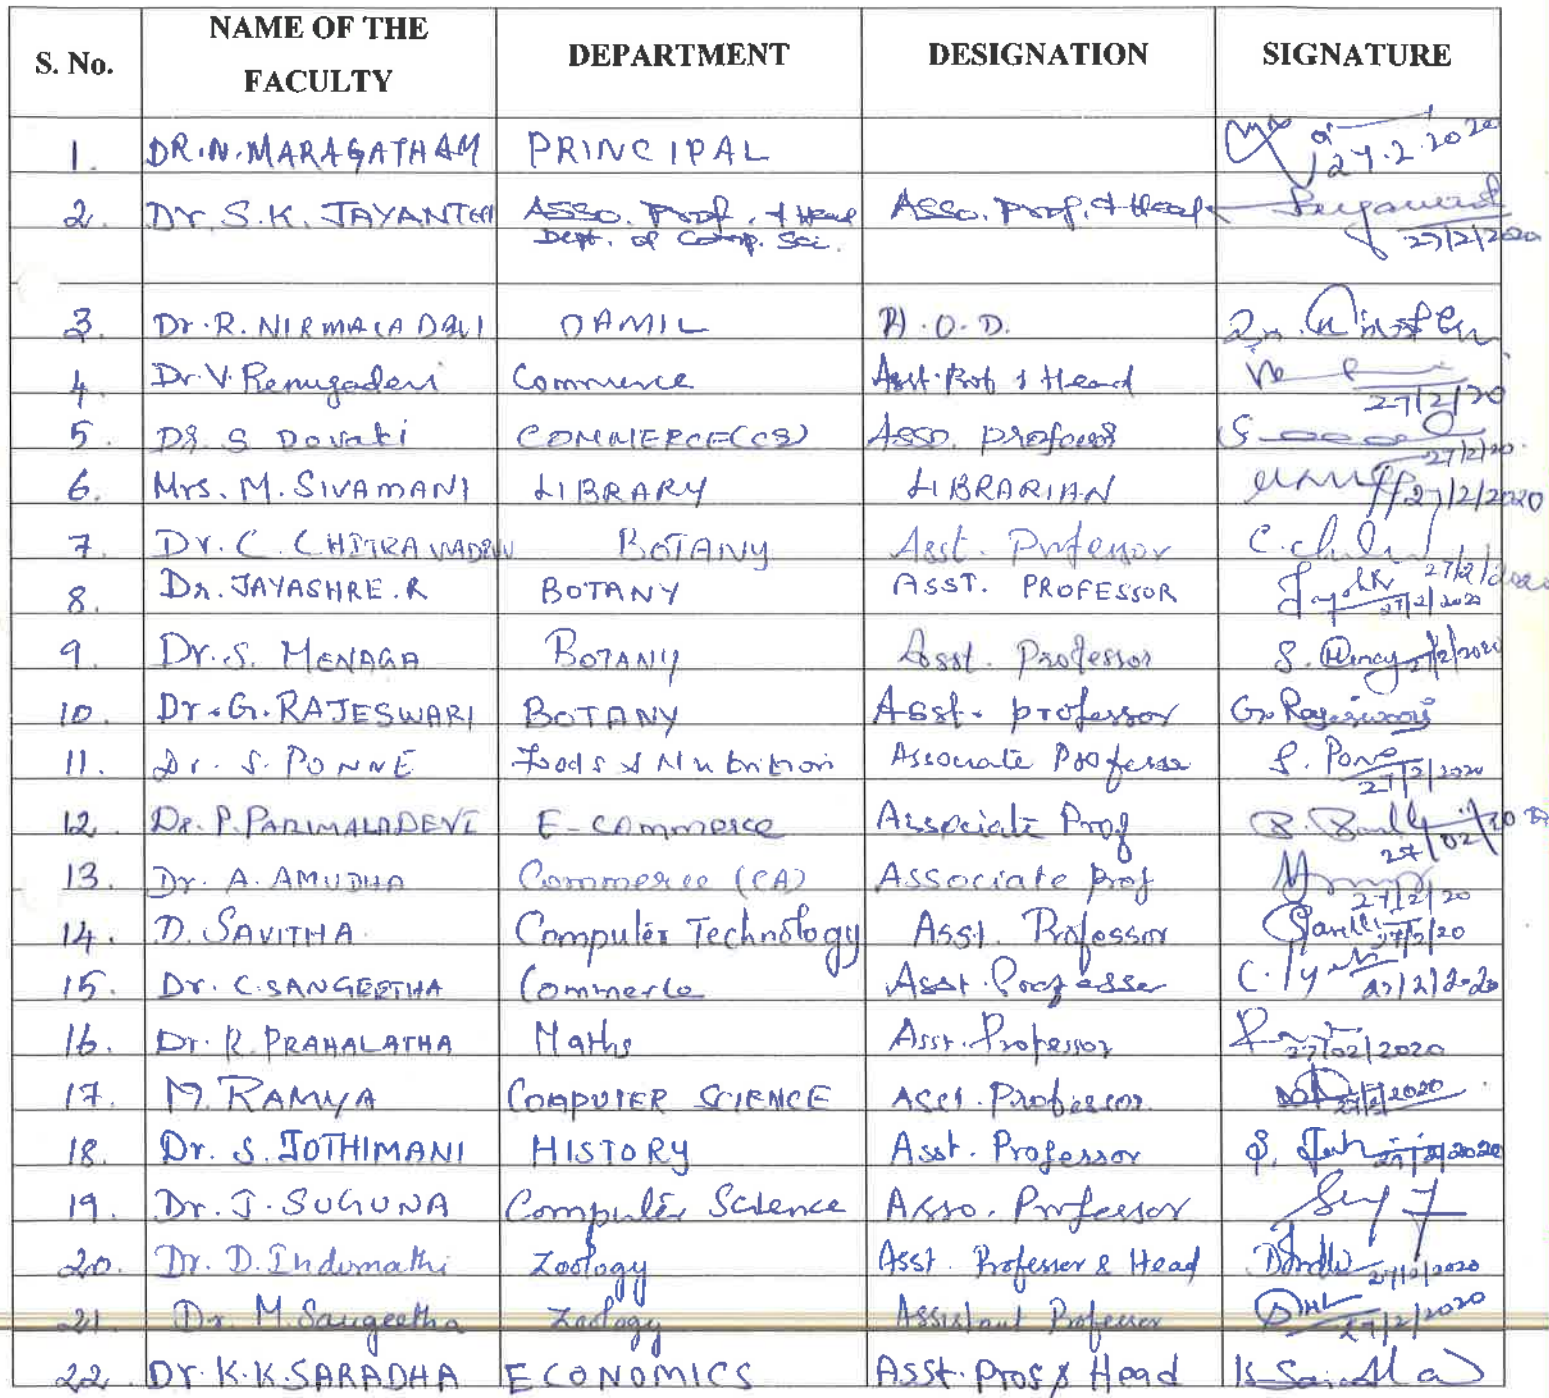 S. No. NAME OF THE FACULTY DEPARTMENT DESIGNATION SIGNATURE
1. DR.N.MARAGATHAM PRINCIPAL 27.2.2020
2. Dr. S.K. JAYANTHI Asso. Prof. & Head Asso. Prof. & Head 27/2/2020
Dept. of Comp. Sci.
3. Dr. R. NIRMALADEVI TAMIL H.O.D.
4. Dr. V. Renugadevi Commerce Asst. Prof & Head 27/2/20
5. Dr. S COMMERCE(CS) Asso. professor 27/2/20
6. Mrs. M. SIVAMANI LIBRARY LIBRARIAN 27/2/2020
7. Dr. C. CHITRA BOTANY Asst. Professor C. 27/2/2020
8. Dr. JAYASHRE.R BOTANY ASST. PROFESSOR 27/2/2020
9. Dr. S. MENAGA BOTANY Asst. Professor S. 27/2/2020
10. Dr. G. RAJESWARI BOTANY Asst. professor G. Rajeswari
11. Dr. S. PONNE Foods & Nutrition Associate Professor S. 27/2/2020
12. Dr. P. PARIMALADEVI E-commerce Associate Prof 27/02/20
13. Dr. A. AMUDHA Commerce (CA) Associate prof 27/2/20
14. D. SAVITHA Computer Technology Asst. Professor 27/2/20
15. Dr. C. SANGEETHA Commerce Asst. Professor C. 27/2/2020
16. Dr. R. PRAHALATHA Maths Asst. Professor 27/02/2020
17. M. RAMYA COMPUTER SCIENCE Asst. Professor 27/2/2020
18. Dr. S. JOTHIMANI HISTORY Asst. Professor S. 27/2/2020
19. Dr. J. SUGUNA Computer Science Asso. Professor
20. Dr. D. Indumathi Zoology Asst. Professor & Head 27/2/2020
21. Dr. M. Sangeetha Zoology Assistant Professor 27/2/2020
22. Dr. K.K. SARADHA ECONOMICS Asst. Prof & Head